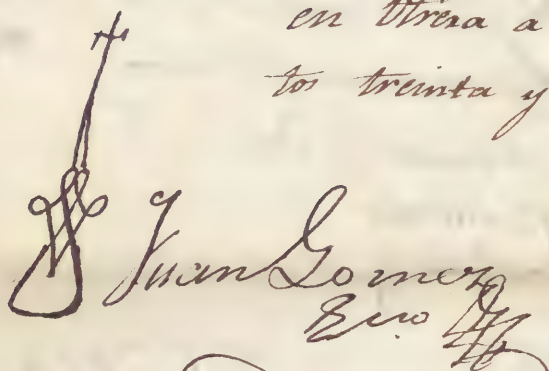 en Utrera a
tos treinta y
Juan Gomez
Esno